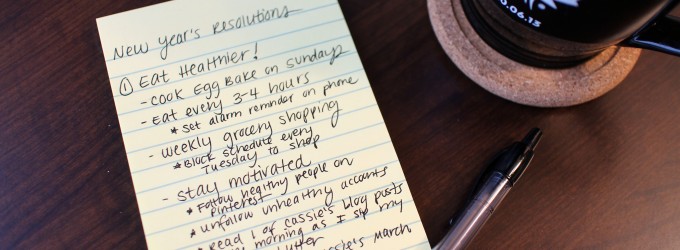 New year's resolutions
① Eat Healthier!
- Cook Egg Bake on Sundays
- Eat every 3-4 hours
* Set alarm reminder on phone
- weekly grocery shopping
* Block schedule every
Tuesday to shop
- stay motivated
* Follow healthy people on
Pinterest
* Unfollow unhealthy accounts
* Read 1 of Cassie's blog posts
morning as I sip my
Cassie's March
0.06.13